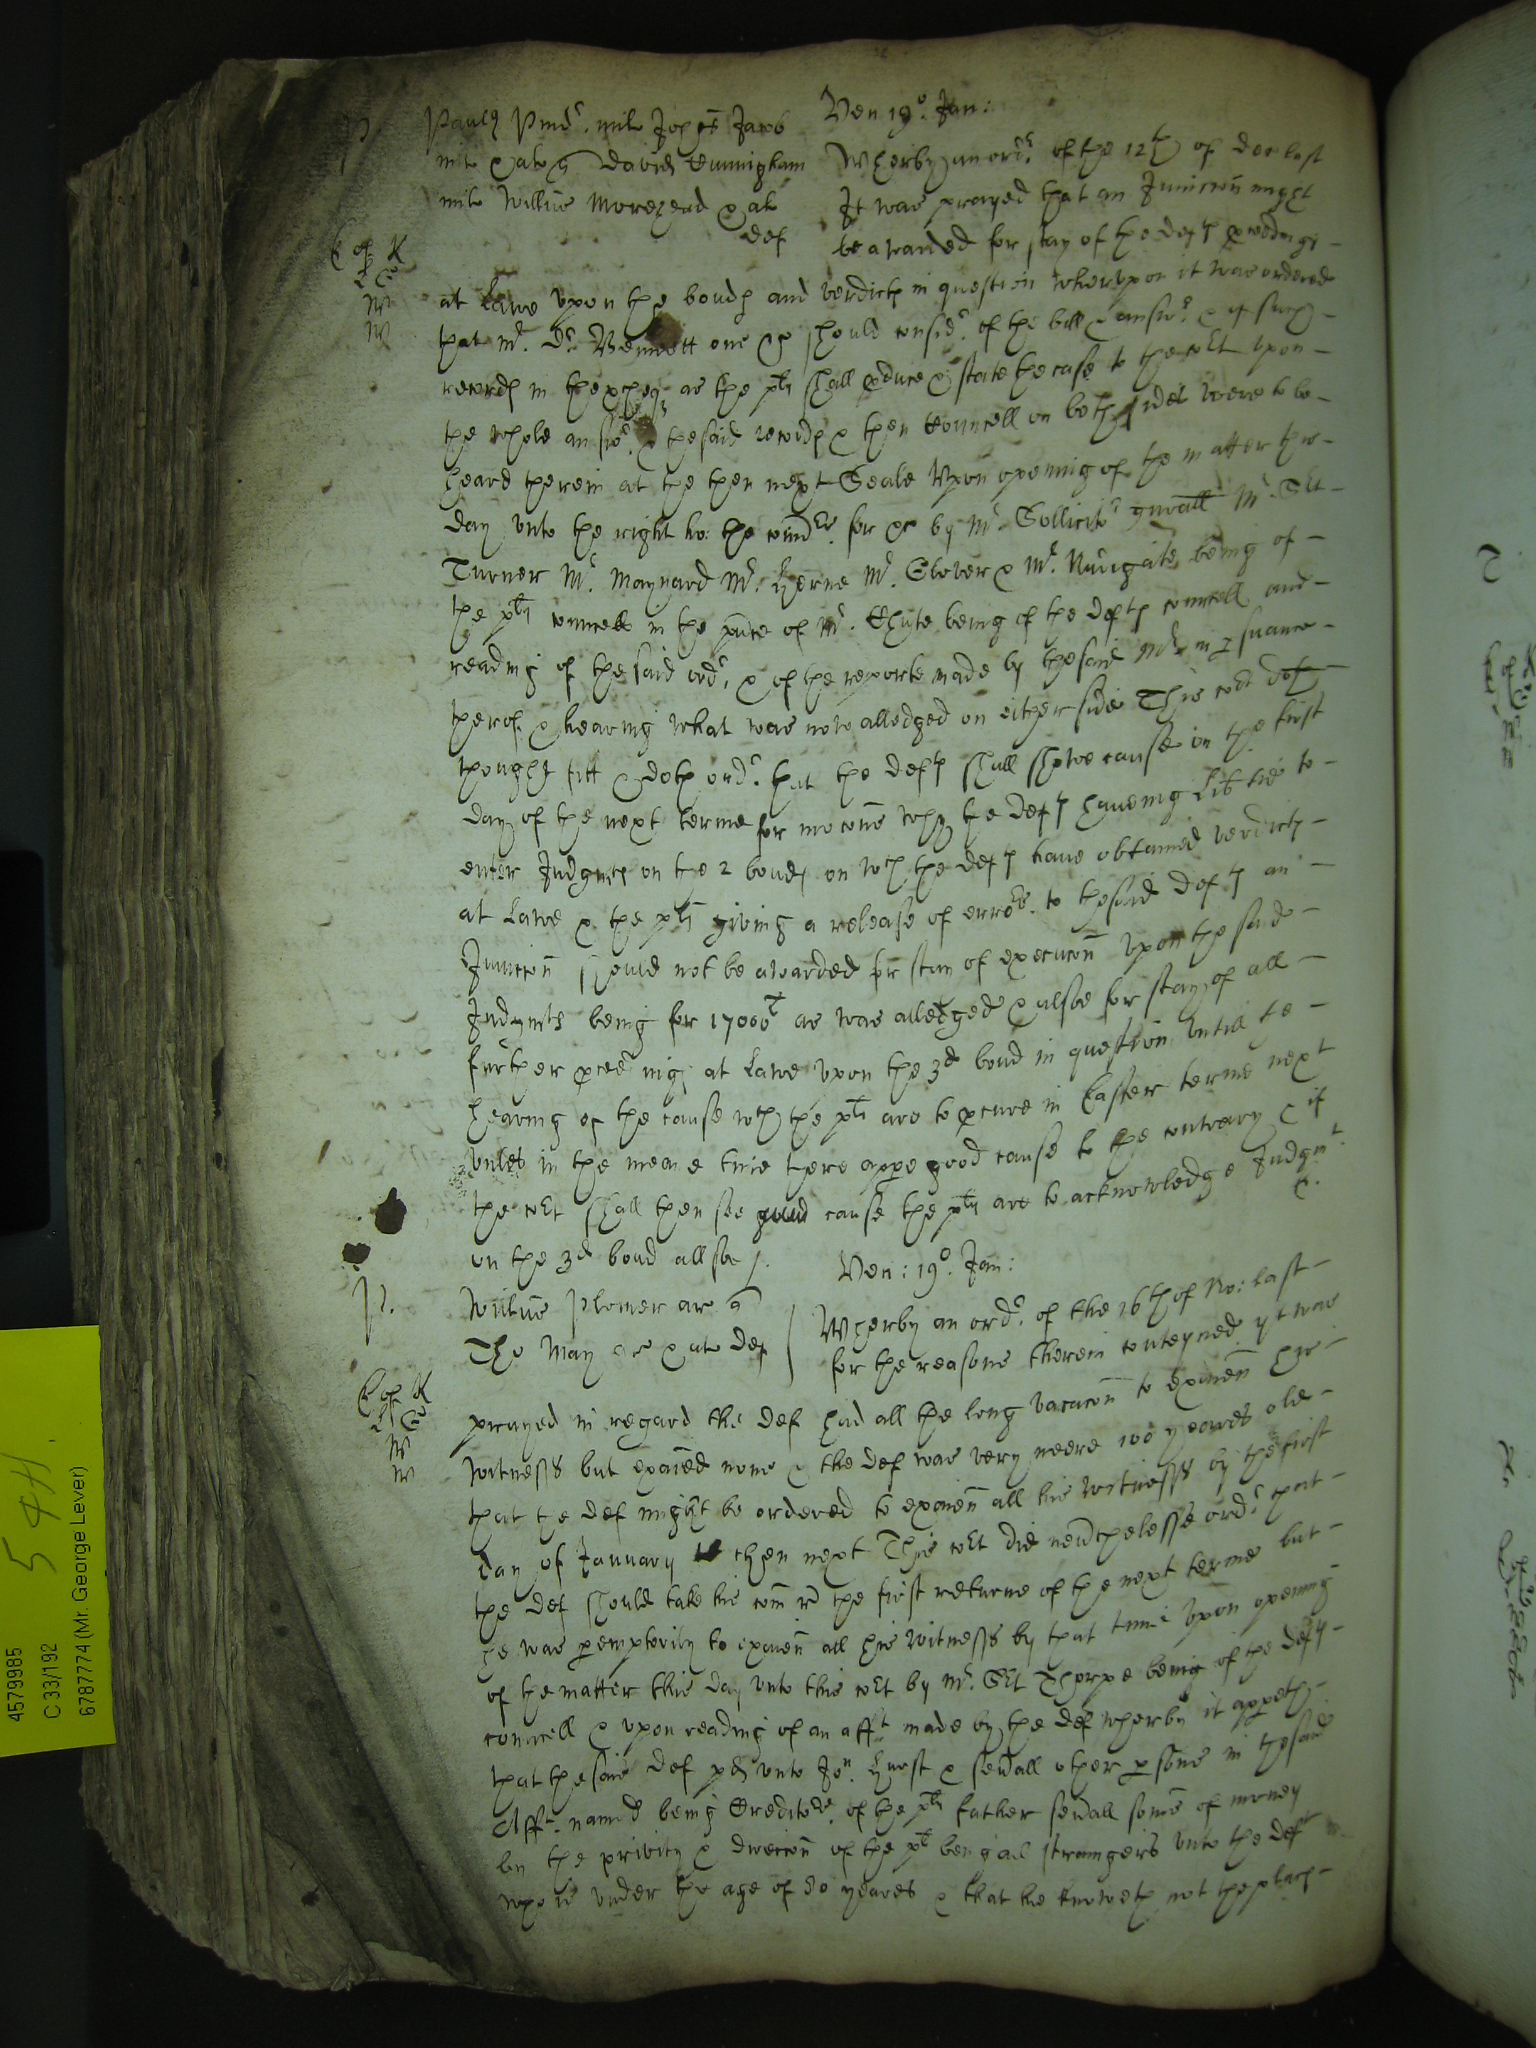 P. Paulus Pindr. mil Johes Jacob
mil & al q David Cunnigham
mil Willms Morehead & al
def
Ven 19o. Jan:
Wherby an ordr. of the 12th of Dec last
It was prayed that an Iniuncon might
be awarded for stay of the defts pcedings
K
W
W
at Lawe upon the bonds and verdicts in question wherupon it was ordered
that Mr. Dr. Bennett one &c should considr. of the bill & answr. & of such
records in thexcheqr as the plts shall pduce & state the case to the Cort upon
the whole answr. & the said records & then Councell on both sides were to be
heard therein at the then next Seale Upon openinge of the matter this
day unto the right ho: the comrs. for &c by Mr. Sollicitr genrall Mr. Sjt
Turner Mr. Maynard Mr. Herne Mr. Glover & Mr. being of
the plts councell in the pnce of Mr. Chute being of the defts councell and
reading of the said ordr. & of the reporte made by the said Mr in psuance
therof & hearing what was now alledged on either side This Cort doth
thought fitt & doth ordr. that the defts shall shewe cause on the first
day of the next terme for mocons why the defts haueing libtie to
enter Judgmts on the 2 bonds on wch the defts haue obtained verdicts
at Lawe & the plts giving a release of errors. to the said defts an
Iniuncon should not be awarded for stay of execucon upon the said
Judgmts being for 17000l as was alledged & alsoe for stay of all
further pceedings at Lawe upon the 3d bond in question untill the
hearing of the cause wch the plts are to pcure in Easter terme next
unles in the meane time there appe good cause to the contrary & if
the Cort shall then see good cause the plts are to acknowledge Judgmt.
on the 3d bond allsoe /.
P.
Willms Plomer ar q
Tho May ar & al def
Ven: 19o. Jan:
Wherby an ordr. of the 16th of No: last
for the reasons therein conteyned yt was
K
W
W
prayed in regard the def had all the long vacacon to examen his
witnesss but exaied none & the def was very neere 100 yeares old
that the def might be ordered to examen all his witnesss by the first
day of January then next This Cort did nevrthelesse ordr. that
the def should take his com re the first returne of the next terme but
he was pemptorily to examen all his witnesss by that time Upon opening
of the matter this day unto this Cort by Mr. Sjt Thorpe being of the defts
councell & upon reading of an afft made by the def wherby it appeth
that the said def pd unto Jon. Hurst & sevrall other psons in the said
Afft. named being Creditors. of the plts father sevrall somes of money
by the privity & direccon of the plt being all straungers unto the def
who is under the age of 80 yeares & that he knoweth not the places
4579985
C 33/192
6787774 (Mr. George Lever)
544.